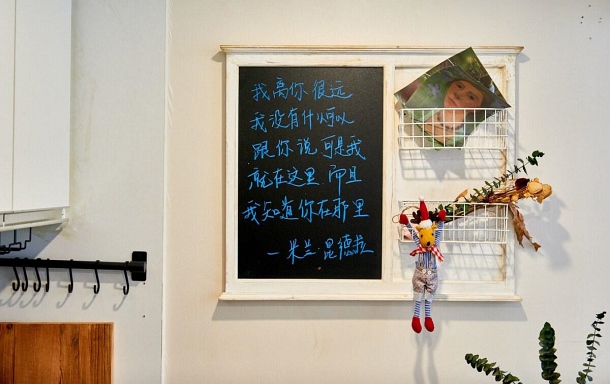 我离你很远
我没有什么可以
跟你说 可是我
就在这里 而且
我知道你在那里
—米兰·昆德拉